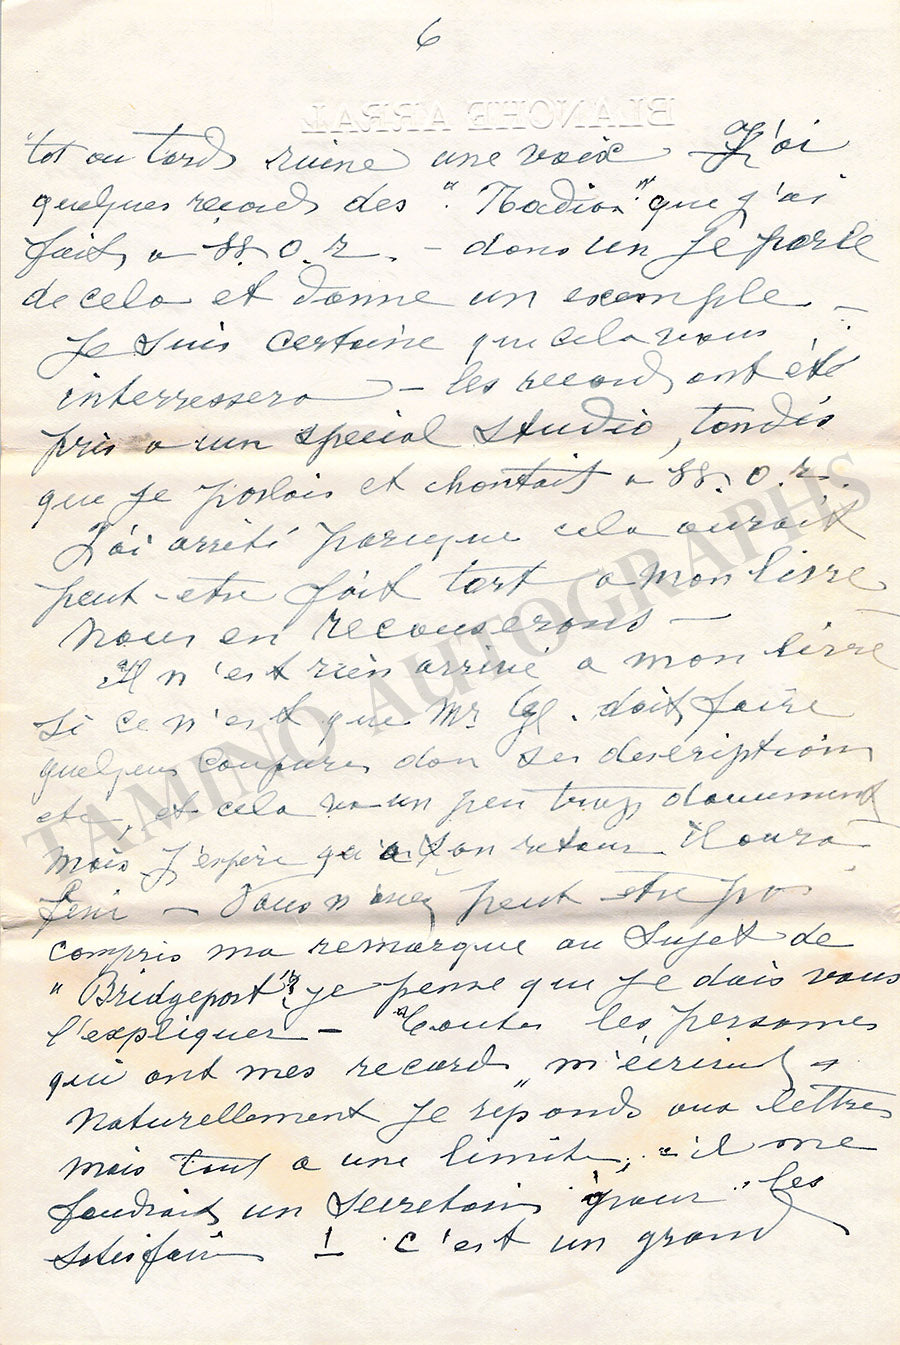 6
BLANCHE ARRAL
tot ou tard ruine une voix J'ai
quelques records des "Radios" que j'ai
fait a W.O.R. - dans un je parle
de cela et donne un exemple -
Je suis certaine que cela vous
interressera - les records ont été
pris a un special studio, tandis
que je parlais et chantait a W.O.R.
J'ai arrêté parceque cela aurait
peut-etre fait tort a mon livre
Nous en recauserons -
Il n'est rien arrivé a mon livre
si ce n'est que Mr doit faire
quelques coupures dan ses descriptions
etc, et cela va un peu trop doucement
mais j'espère qu'a son retour il aura
fini - Vous n'avez peut etre pas
compris ma remarque au sujet de
"Bridgeport" je pense que je dois vous
l'expliquer - Toutes les personnes
qui ont mes records m'écrivent
Naturellement je réponds aux lettres
mais tout a une limite, il me
faudrait un secretaire pour les
satisfaire ! c'est un grand
TAMINO AUTOGRAPHS